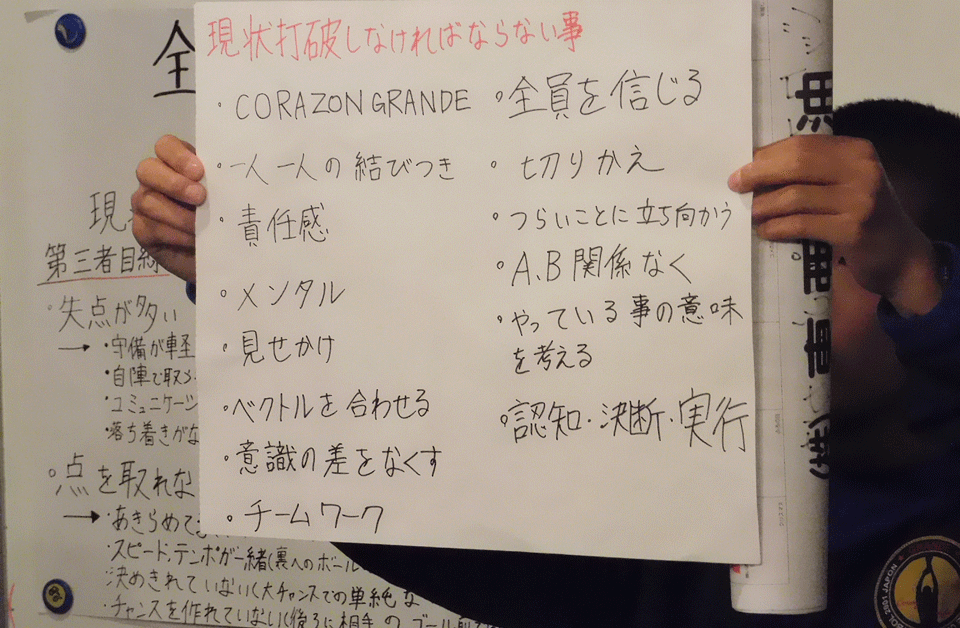 現状打破しなければならない事
・CORAZON GRANDE
・一人一人の結びつき
・責任感
・メンタル
・見せかけ
・ベクトルを合わせる
・意識の差をなくす
・チームワーク
・全員を信じる
・切りかえ
・つらいことに立ち向かう
・A.B関係なく
・やっている事の意味
を考える
・認知・決断・実行
全
現
第三者目線
・失点が多い
→・守備が軽
・自陣で取
・コミュニケーシ
・落ち着きがな
・点を取れな
→・あきらめて
・スピード、テンポが一緒(裏へのボール
決めきれていない(大チャンスでの単純な
・チャンスを作れていない(後ろに相手のゴール前